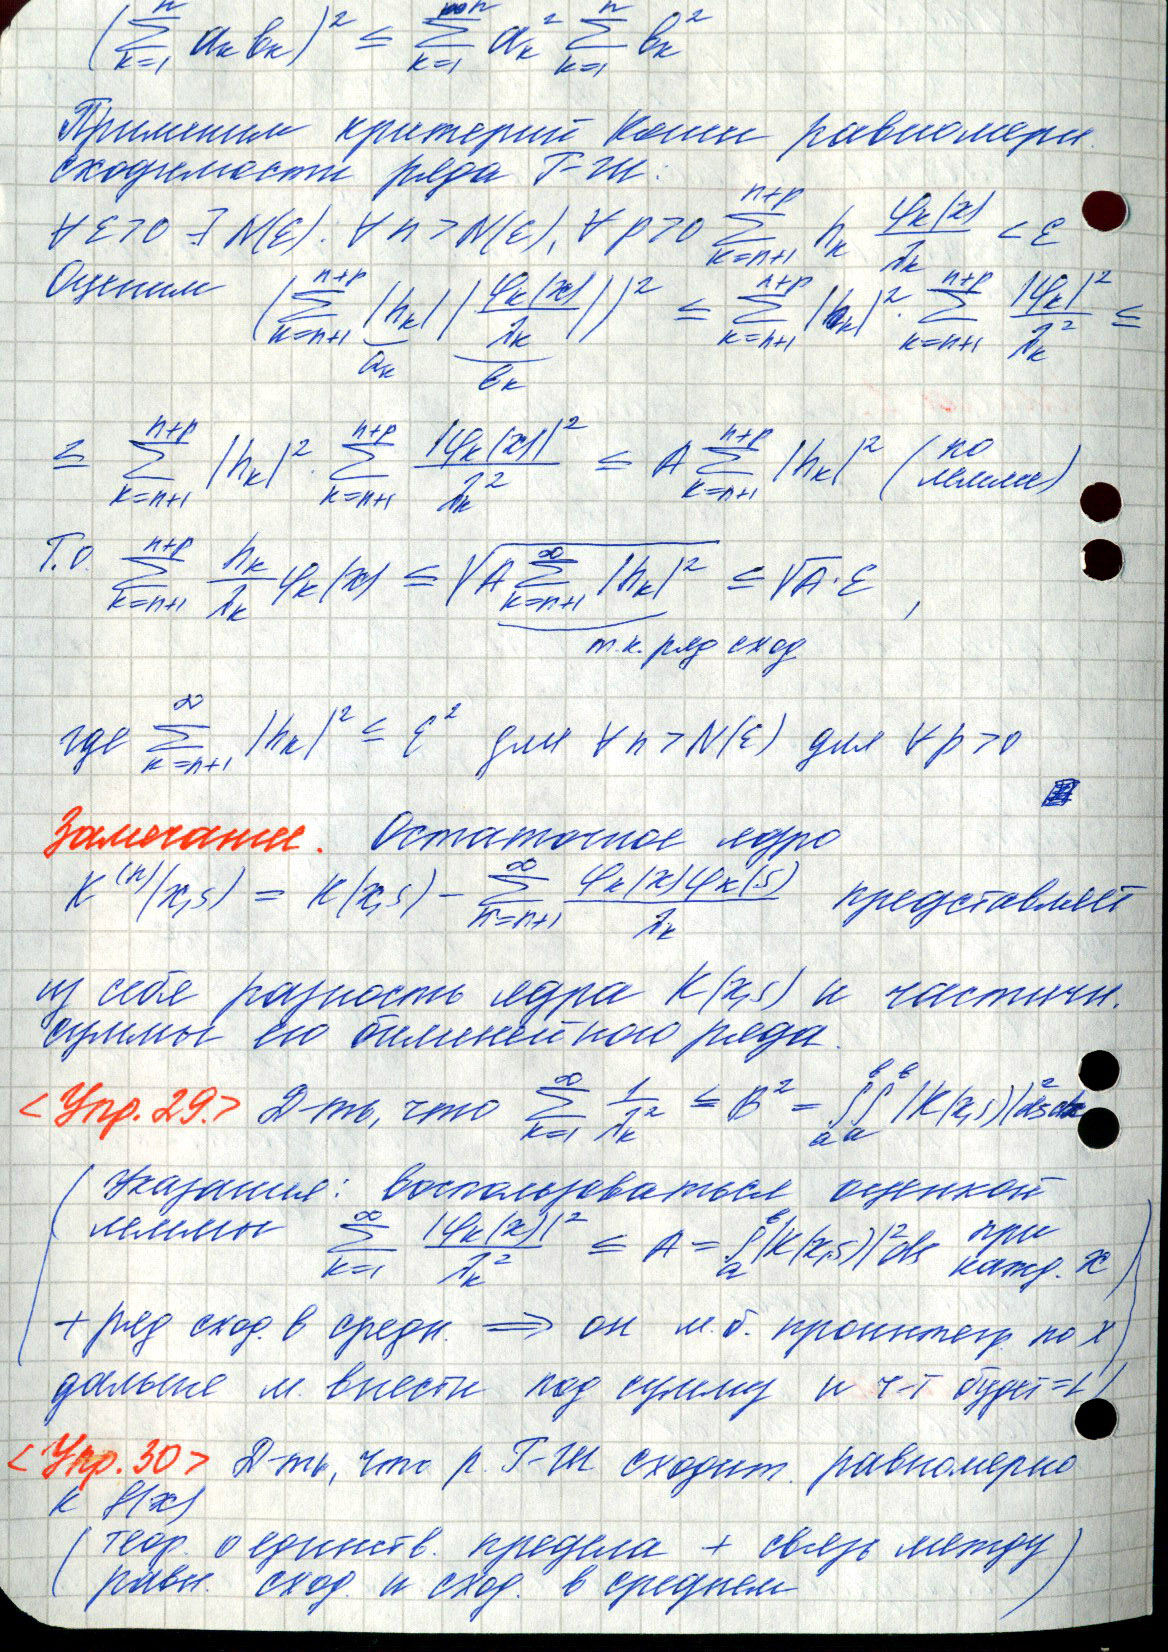 (∑_{k=1}^{n} a_k b_k)² ≤ ∑_{k=1}^{n} a_k² ∑_{k=1}^{n} b_k²
Применим критерий Коши равномерн.
сходимости ряда Г-Ш:
∀ε>0 ∃ N(ε): ∀n>N(ε), ∀p>0 ∑_{k=n+1}^{n+p} h_k φ_k(x)/λ_k < ε
Оценим (∑_{k=n+1}^{n+p} |h_k| |φ_k(x)/λ_k|)² ≤ ∑_{k=n+1}^{n+p} |h_k|² · ∑_{k=n+1}^{n+p} |φ_k|²/λ_k² ≤
a_k b_k
≤ ∑_{k=n+1}^{n+p} |h_k|² · ∑_{k=n+1}^{n+p} |φ_k(x)|²/λ_k² ≤ A ∑_{k=n+1}^{n+p} |h_k|² (по лемме)
Т.о. ∑_{k=n+1}^{n+p} h_k/λ_k φ_k(x) ≤ √(A ∑_{k=n+1}^{∞} |h_k|²) ≤ √A · ε ,
т.к. ряд сход
где ∑_{k=n+1}^{∞} |h_k|² ≤ ε² для ∀n>N(ε) для ∀p>0
Замечание. Остаточное ядро
K^{(n)}(x,s) = K(x,s) - ∑_{n=n+1}^{∞} φ_k(x)φ_k(s)/λ_k представляет
из себя разность ядра K(x,s) и частичн.
суммы его билинейного ряда.
<Упр. 29.> Д-ть, что ∑_{k=1}^{∞} 1/λ_k² ≤ B² = ∫_a^b ∫_a^b |K(x,s)|² ds dx
(Указания: воспользоваться оценкой
леммы ∑_{k=1}^{∞} |φ_k(x)|²/λ_k² ≤ A = ∫_a^b |K(x,s)|² ds при кажд. x
+ ряд сход. в средн. ⟹ он м.б. проинтегр. по x
дальше м. внести под сумму и ч-т будет =1)
<Упр. 30> Д-ть, что р. Г-Ш сходит. равномерно
к f(x)
(теор. о единств. предела + связь между
равн. сход. и сход. в среднем)